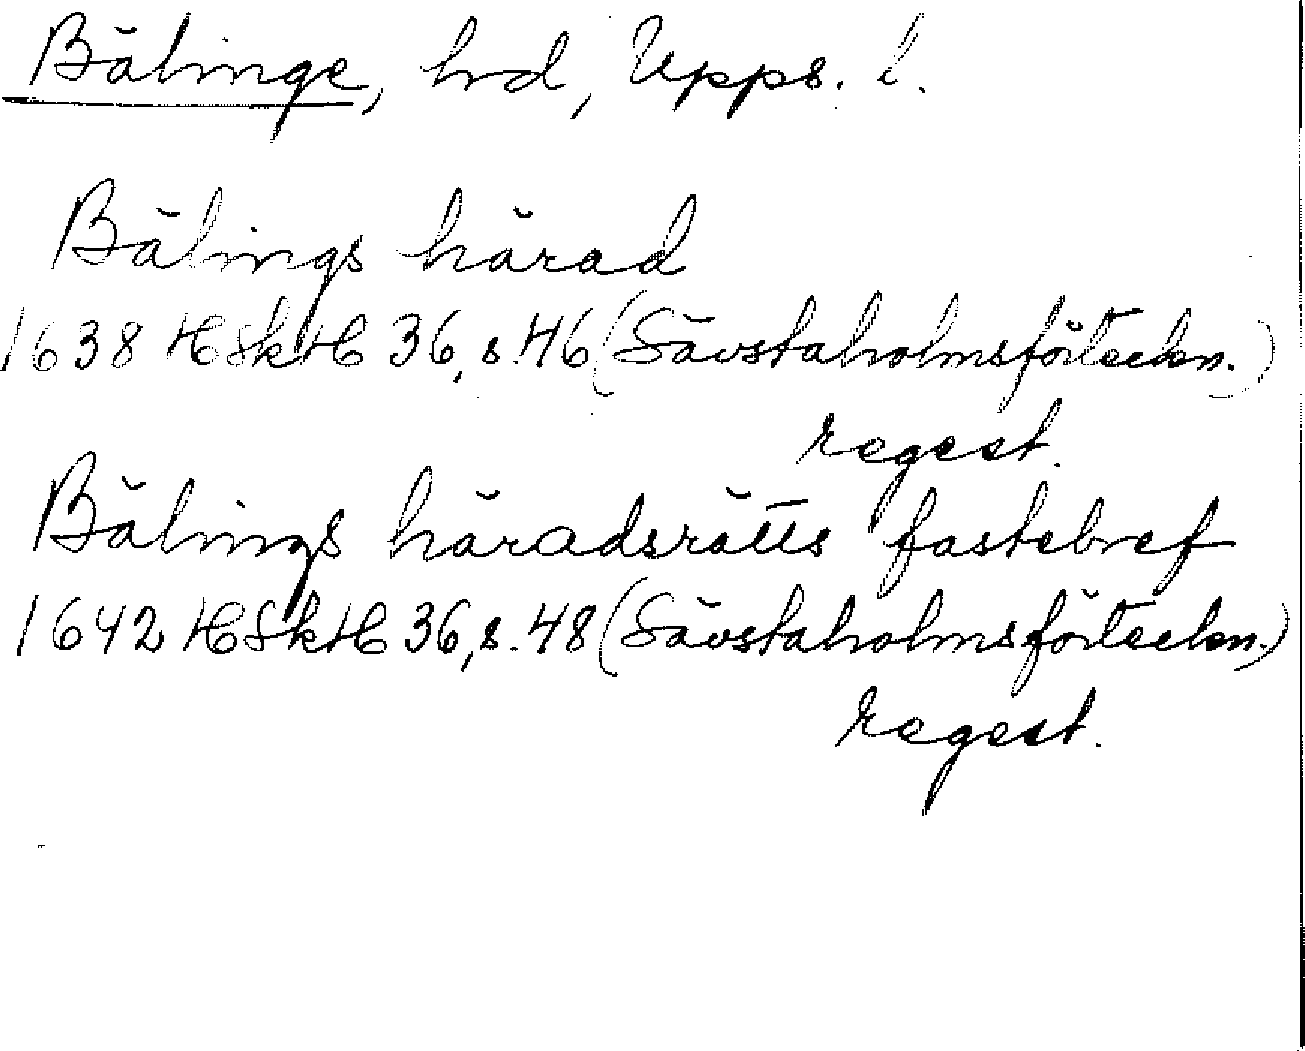 Bälinge, hd, Upps. l.
Bälings härad
1638 HSkH 36, s. 46 (Sävstaholmsförteckn.)
regest.
Bälings häradsrätts fastebref
1642 HSkH 36, s. 48 (Sävstaholmsförteckn.)
regest.